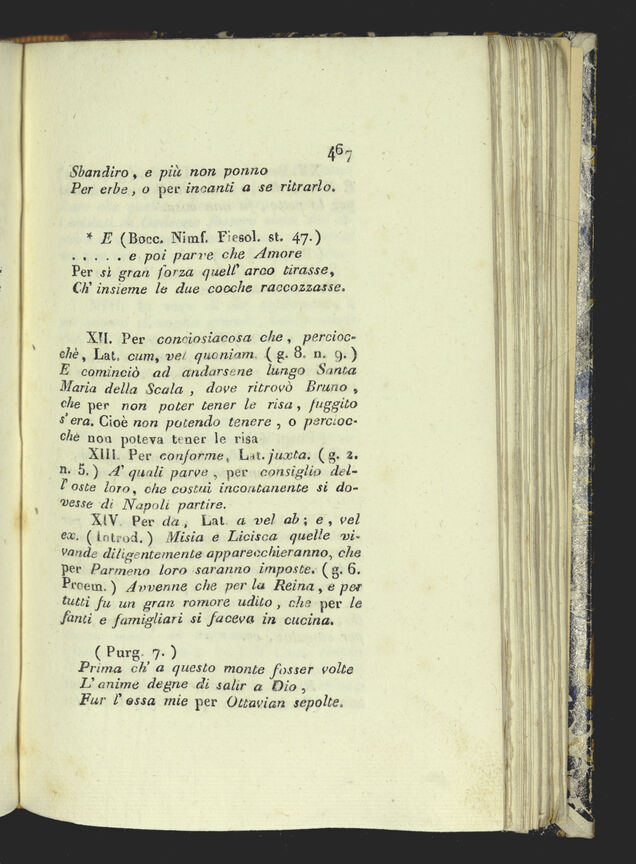 467
Sbandiro, e più non ponno
Per erbe, o per incanti a se ritrarlo.
* E (Bocc. Nimf. Fiesol. st. 47.)
. . . . . e poi parve che Amore
Per sì gran forza quell' arco tirasse,
Ch' insieme le due cocche raccozzasse.
XII. Per conciosiacosa che, percioc-
chè, Lat. cum, vel quoniam. (g. 8. n. 9.)
E cominciò ad andarsene lungo Santa
Maria della Scala, dove ritrovò Bruno,
che per non poter tener le risa, fuggito
s'era. Cioè non potendo tenere, o percioc-
chè non poteva tener le risa
XIII. Per conforme, Lat. juxta. (g. 2.
n. 5.) A' quali parve, per consiglio del-
l'oste loro, che costui incontanente si do-
vesse di Napoli partire.
XIV. Per da, Lat. a vel ab; e, vel
ex. (Introd.) Misia e Licisca quelle vi-
vande diligentemente apparecchieranno, che
per Parmeno loro saranno imposte. (g. 6.
Proem.) Avvenne che per la Reina, e per
tutti fu un gran romore udito, che per le
fanti e famigliari si faceva in cucina.
(Purg. 7.)
Prima ch' a questo monte fosser volte
L'anime degne di salir a Dio,
Fur l'ossa mie per Ottavian sepolte.